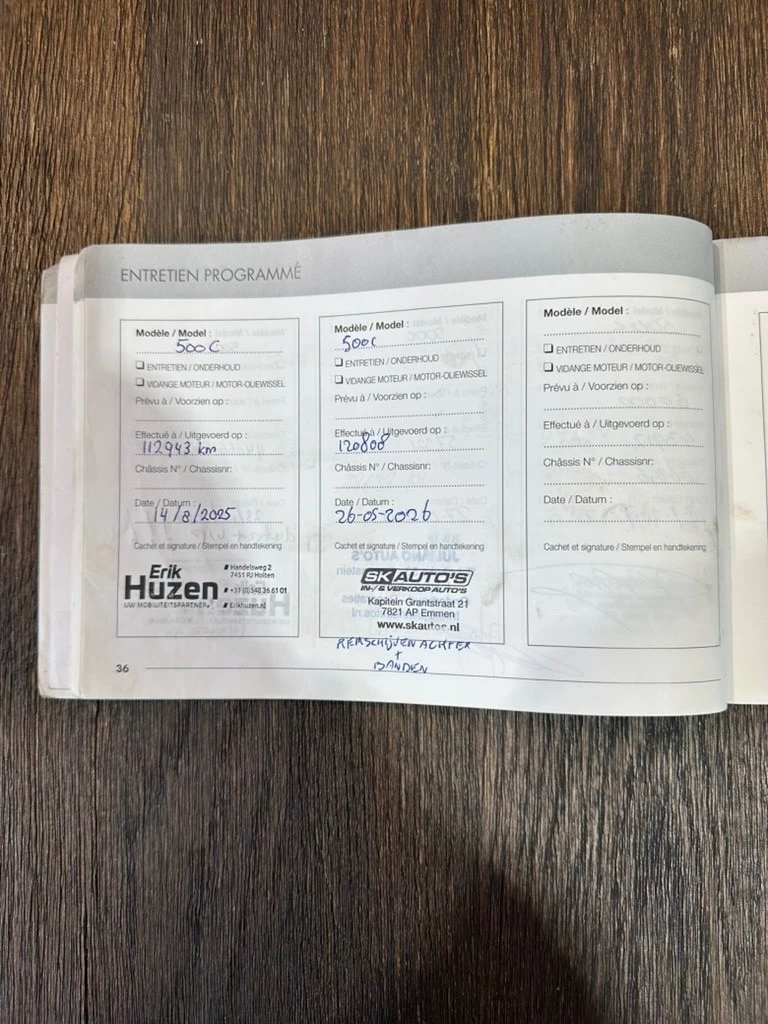 ENTRETIEN PROGRAMMÉ
Modèle / Model :
500C
ENTRETIEN / ONDERHOUD
VIDANGE MOTEUR / MOTOR-OLIEWISSEL
Prévu à / Voorzien op :
Effectué à / Uitgevoerd op :
112943 km
Châssis N° / Chassisnr:
Date / Datum :
14/8/2025
Cachet et signature / Stempel en handtekening
Erik
Huzen
UW MOBILITEITSPARTNER.
Handelsweg 2
7451 PJ Holten
+31 (0)548 36 61 01
Erikhuzen.nl
Modèle / Model :
500C
ENTRETIEN / ONDERHOUD
VIDANGE MOTEUR / MOTOR-OLIEWISSEL
Prévu à / Voorzien op :
Effectué à / Uitgevoerd op :
120808
Châssis N° / Chassisnr:
Date / Datum :
26-05-2026
Cachet et signature / Stempel en handtekening
SK AUTO'S
IN-/ & VERKOOP AUTO'S
Kapitein Grantstraat 21
7821 AP Emmen
www.skautos.nl
REMSCHIJVEN ACHTER
+
BANDEN
Modèle / Model :
ENTRETIEN / ONDERHOUD
VIDANGE MOTEUR / MOTOR-OLIEWISSEL
Prévu à / Voorzien op :
Effectué à / Uitgevoerd op :
Châssis N° / Chassisnr:
Date / Datum :
Cachet et signature / Stempel en handtekening
36